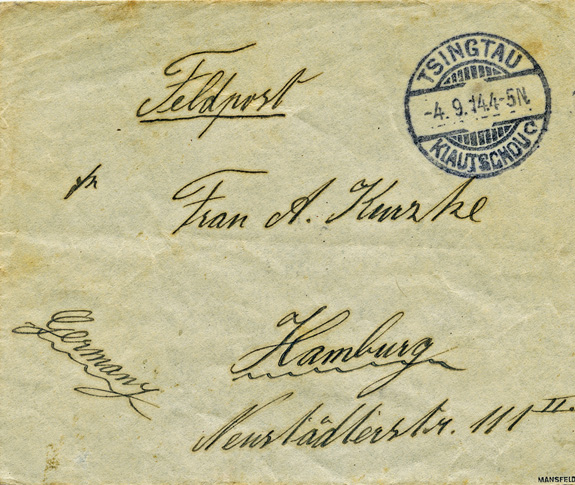 Feldpost
TSINGTAU
-4.9.14.4-5N.
KIAUTSCHOU
Frau A. Kurzke
Hamburg
Germany
Neustädterstr. 111 II.
MANSFELD